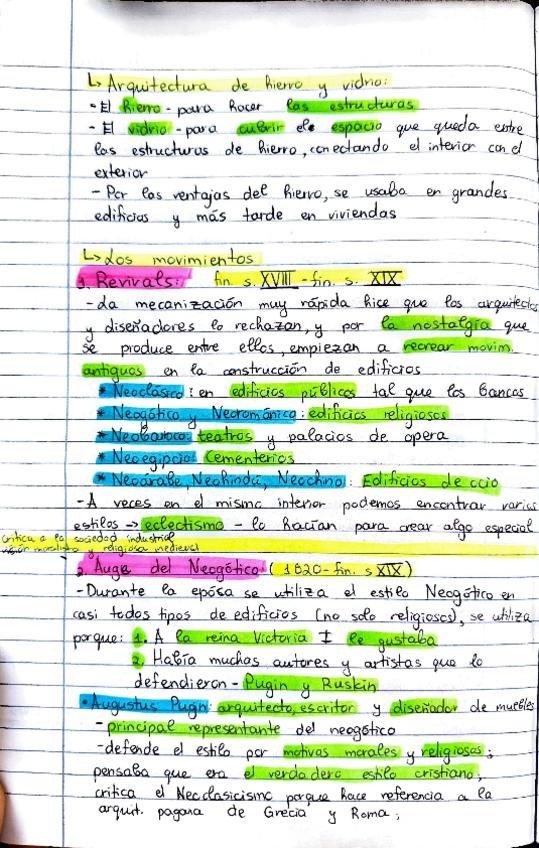 ↳ Arquitectura de hierro y vidrio:
- El hierro - para hacer las estructuras
- El vidrio - para cubrir ele espacio que queda entre
las estructuras de hierro, conectando el interior con el
exterior
- Por las ventajas del hierro, se usaba en grandes
edificios y más tarde en viviendas
↳ Los movimientos
1. Revivals: fin. s. XVIII - fin. s. XIX
- La mecanización muy rápida hice que los arquitectos
y diseñadores lo rechazan, y por la nostalgia que
se produce entre ellos, empiezan a recrear movim.
antiguos en la construcción de edificios
* Neoclásico: en edificios públicos tal que los bancos
* Neogótico y Neorománico: edificios religiosos
* Neobarroco: teatros y palacios de opera
* Neoegipcio: Cementerios
* Neoárabe, Neohindú, Neochino: Edificios de ocio
- A veces en el mismo interior podemos encontrar varios
estilos → eclectismo - lo hacían para crear algo especial
Crítica a la sociedad industrial
visión moralista y religiosa medieval
2. Auge del Neogótico: (1820 - fin. s XIX)
- Durante la epósa se utiliza el estilo Neogótico en
casi todos tipos de edificios (no solo religiosos), se utiliza
porque: 1. A la reina Victoria I le gustaba
2. Había muchos autores y artistas que lo
defendieron - Pugin y Ruskin
• Augustus Pugn: arquitecto, escritor y diseñador de muebles
- principal representante del neogótico
- defende el estilo por motivas morales y religiosos;
pensaba que era el verdadero estilo cristiano,
critica el Neoclasicismo porque hace referencia a la
arquit. pagana de Grecia y Roma;